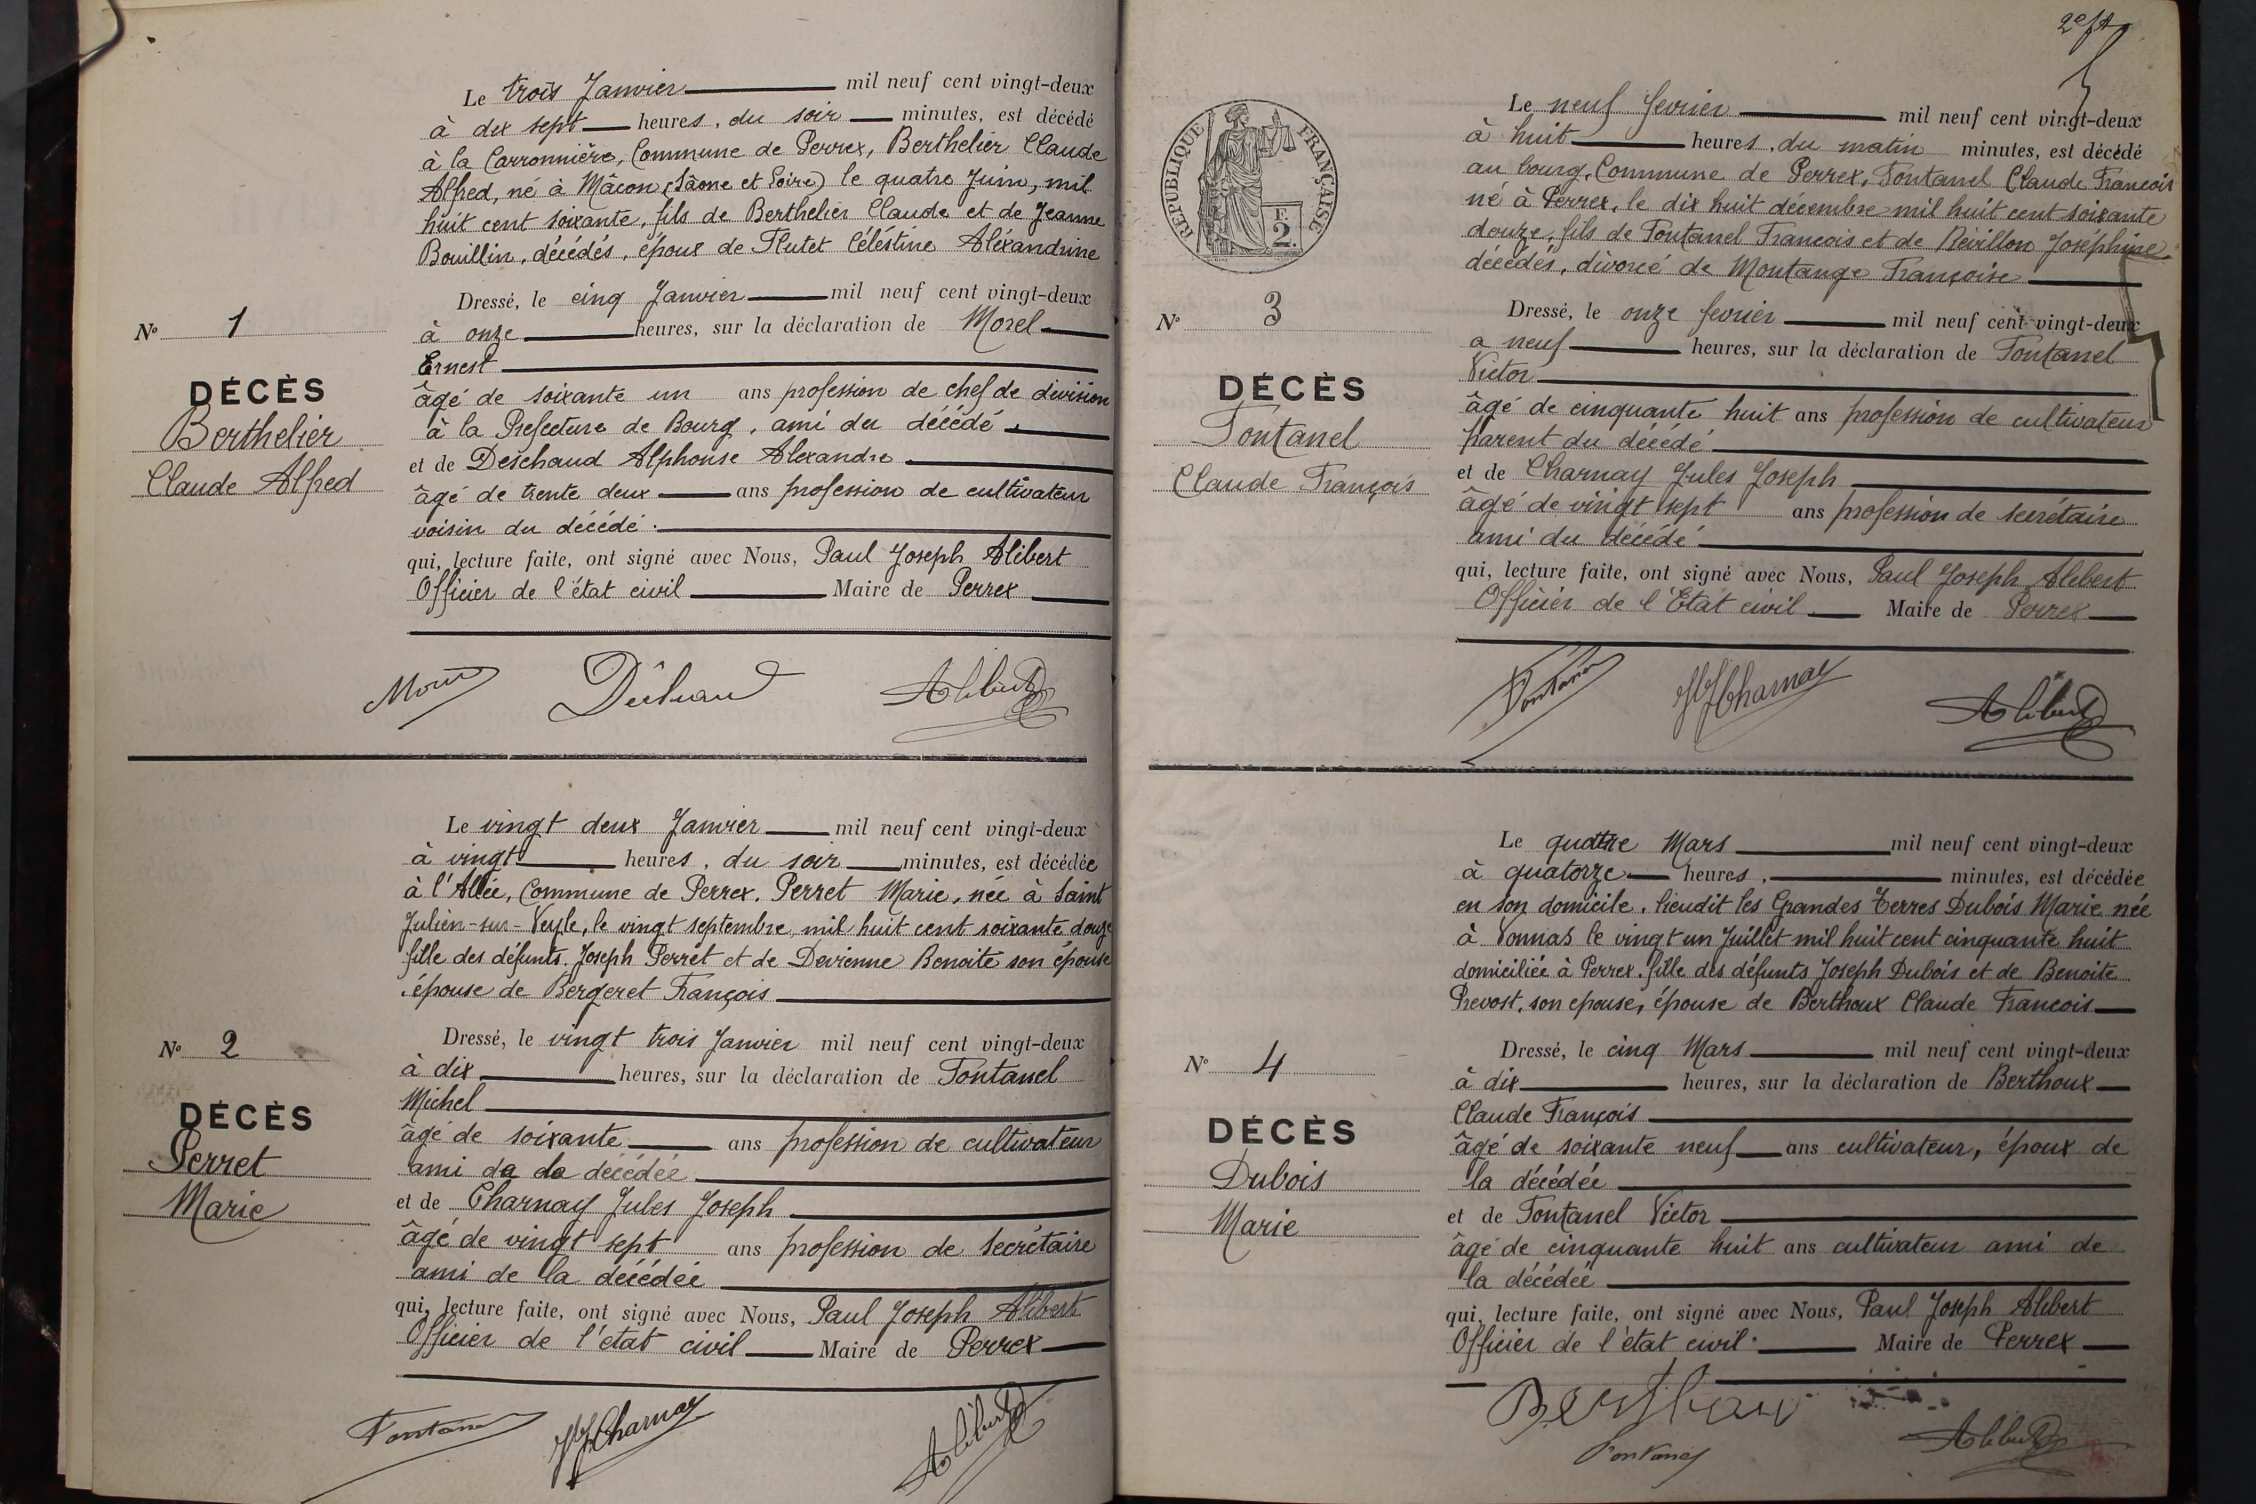 Le trois Janvier mil neuf cent vingt-deux
à dix sept heures, du soir minutes, est décédé
à la Carronnière, Commune de Perrex, Berthelier Claude
Alfred, né à Mâcon (Sâone et Loire) le quatre Juin, mil
huit cent soixante, fils de Berthelier Claude et de Jeanne
Bouillin, décédés, époux de Flutet Céléstine Aléxandrine
Dressé, le cinq Janvier mil neuf cent vingt-deux
à onze heures, sur la déclaration de Morel
Ernest
âgé de soixante un ans profession de chef de division
à la Prefecture de Bourg, ami du décédé,
et de Deschaud Alphonse Alexandre
âgé de trente deux ans profession de cultivateur
voisin du décédé.
qui, lecture faite, ont signé avec Nous, Paul Joseph Alibert
Officier de l'état civil Maire de Perrex
Nº 1
DÉCÈS
Berthelier
Claude Alfred
Alibert
Le vingt deux Janvier mil neuf cent vingt-deux
à vingt heures, du soir minutes, est décédée
à l'Allée, Commune de Perrex. Perret Marie, née à Saint
Julien-sur-Veyle, le vingt septembre, mil huit cent soixante douze
fille des défunts. Joseph Perret et de Devienne Benoite son épouse
épouse de Bergeret François
Dressé, le vingt trois Janvier mil neuf cent vingt-deux
à dix heures, sur la déclaration de Fontanel
Michel
âgé de soixante ans profession de cultivateur
ami de la décédée
et de Charnay Jules Joseph
âgé de vingt sept ans profession de secrétaire
ami de la décédée
qui, lecture faite, ont signé avec Nous, Paul Joseph Alibert
Officier de l'etat civil Maire de Perrex
Nº 2
DÉCÈS
Perret
Marie
Fontanel Charnay Alibert
2e ft
RÉPUBLIQUE FRANÇAISE
F.
2.
Le neuf fevrier mil neuf cent vingt-deux
à huit heures, du matin minutes, est décédé
au bourg, Commune de Perrex, Fontanel Claude Francois
né à Perrex, le dix huit décembre mil huit cent soixante
douze, fils de Fontanel Francois et de Révillon Joséphine
décédés, divorcé de Montange Françoise
Dressé, le onze fevrier mil neuf cent vingt-deux
a neuf heures, sur la déclaration de Fontanel
Victor
âgé de cinquante huit ans profession de cultivateur
parent du décédé
et de Charnay Jules Joseph
âgé de vingt sept ans profession de secrétaire
ami du décédé
qui, lecture faite, ont signé avec Nous, Paul Joseph Alibert
Officier de l'Etat civil Maire de Perrex
Nº 3
DÉCÈS
Fontanel
Claude François
Fontanel Charnay Alibert
Le quatre Mars mil neuf cent vingt-deux
à quatorze heures, minutes, est décédée
en son domicile, lieudit les Grandes Terres Dubois Marie née
à Vonnas le vingt un Juillet mil huit cent cinquante huit
domiciliée à Perrex, fille des défunts Joseph Dubois et de Benoite
Prevost, son epouse, épouse de Berthoux Claude Francois
Dressé, le cinq Mars mil neuf cent vingt-deux
à dix heures, sur la déclaration de Berthoux
Claude François
âgé de soixante neuf ans cultivateur, époux de
la décédée
et de Fontanel Victor
âgé de cinquante huit ans cultivateur ami de
la décédée
qui, lecture faite, ont signé avec Nous, Paul Joseph Alibert
Officier de l'état civil. Maire de Perrex
Nº 4
DÉCÈS
Dubois
Marie
Berthoux
Fontanel Alibert